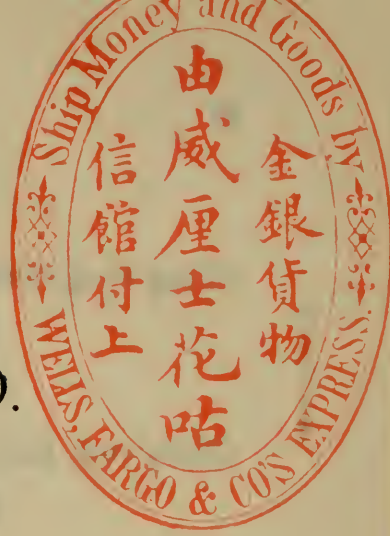 Ship Money and Goods by
WELLS, FARGO & CO'S EXPRESS.
金銀貨物
由威厘士花咕
信館付上
).